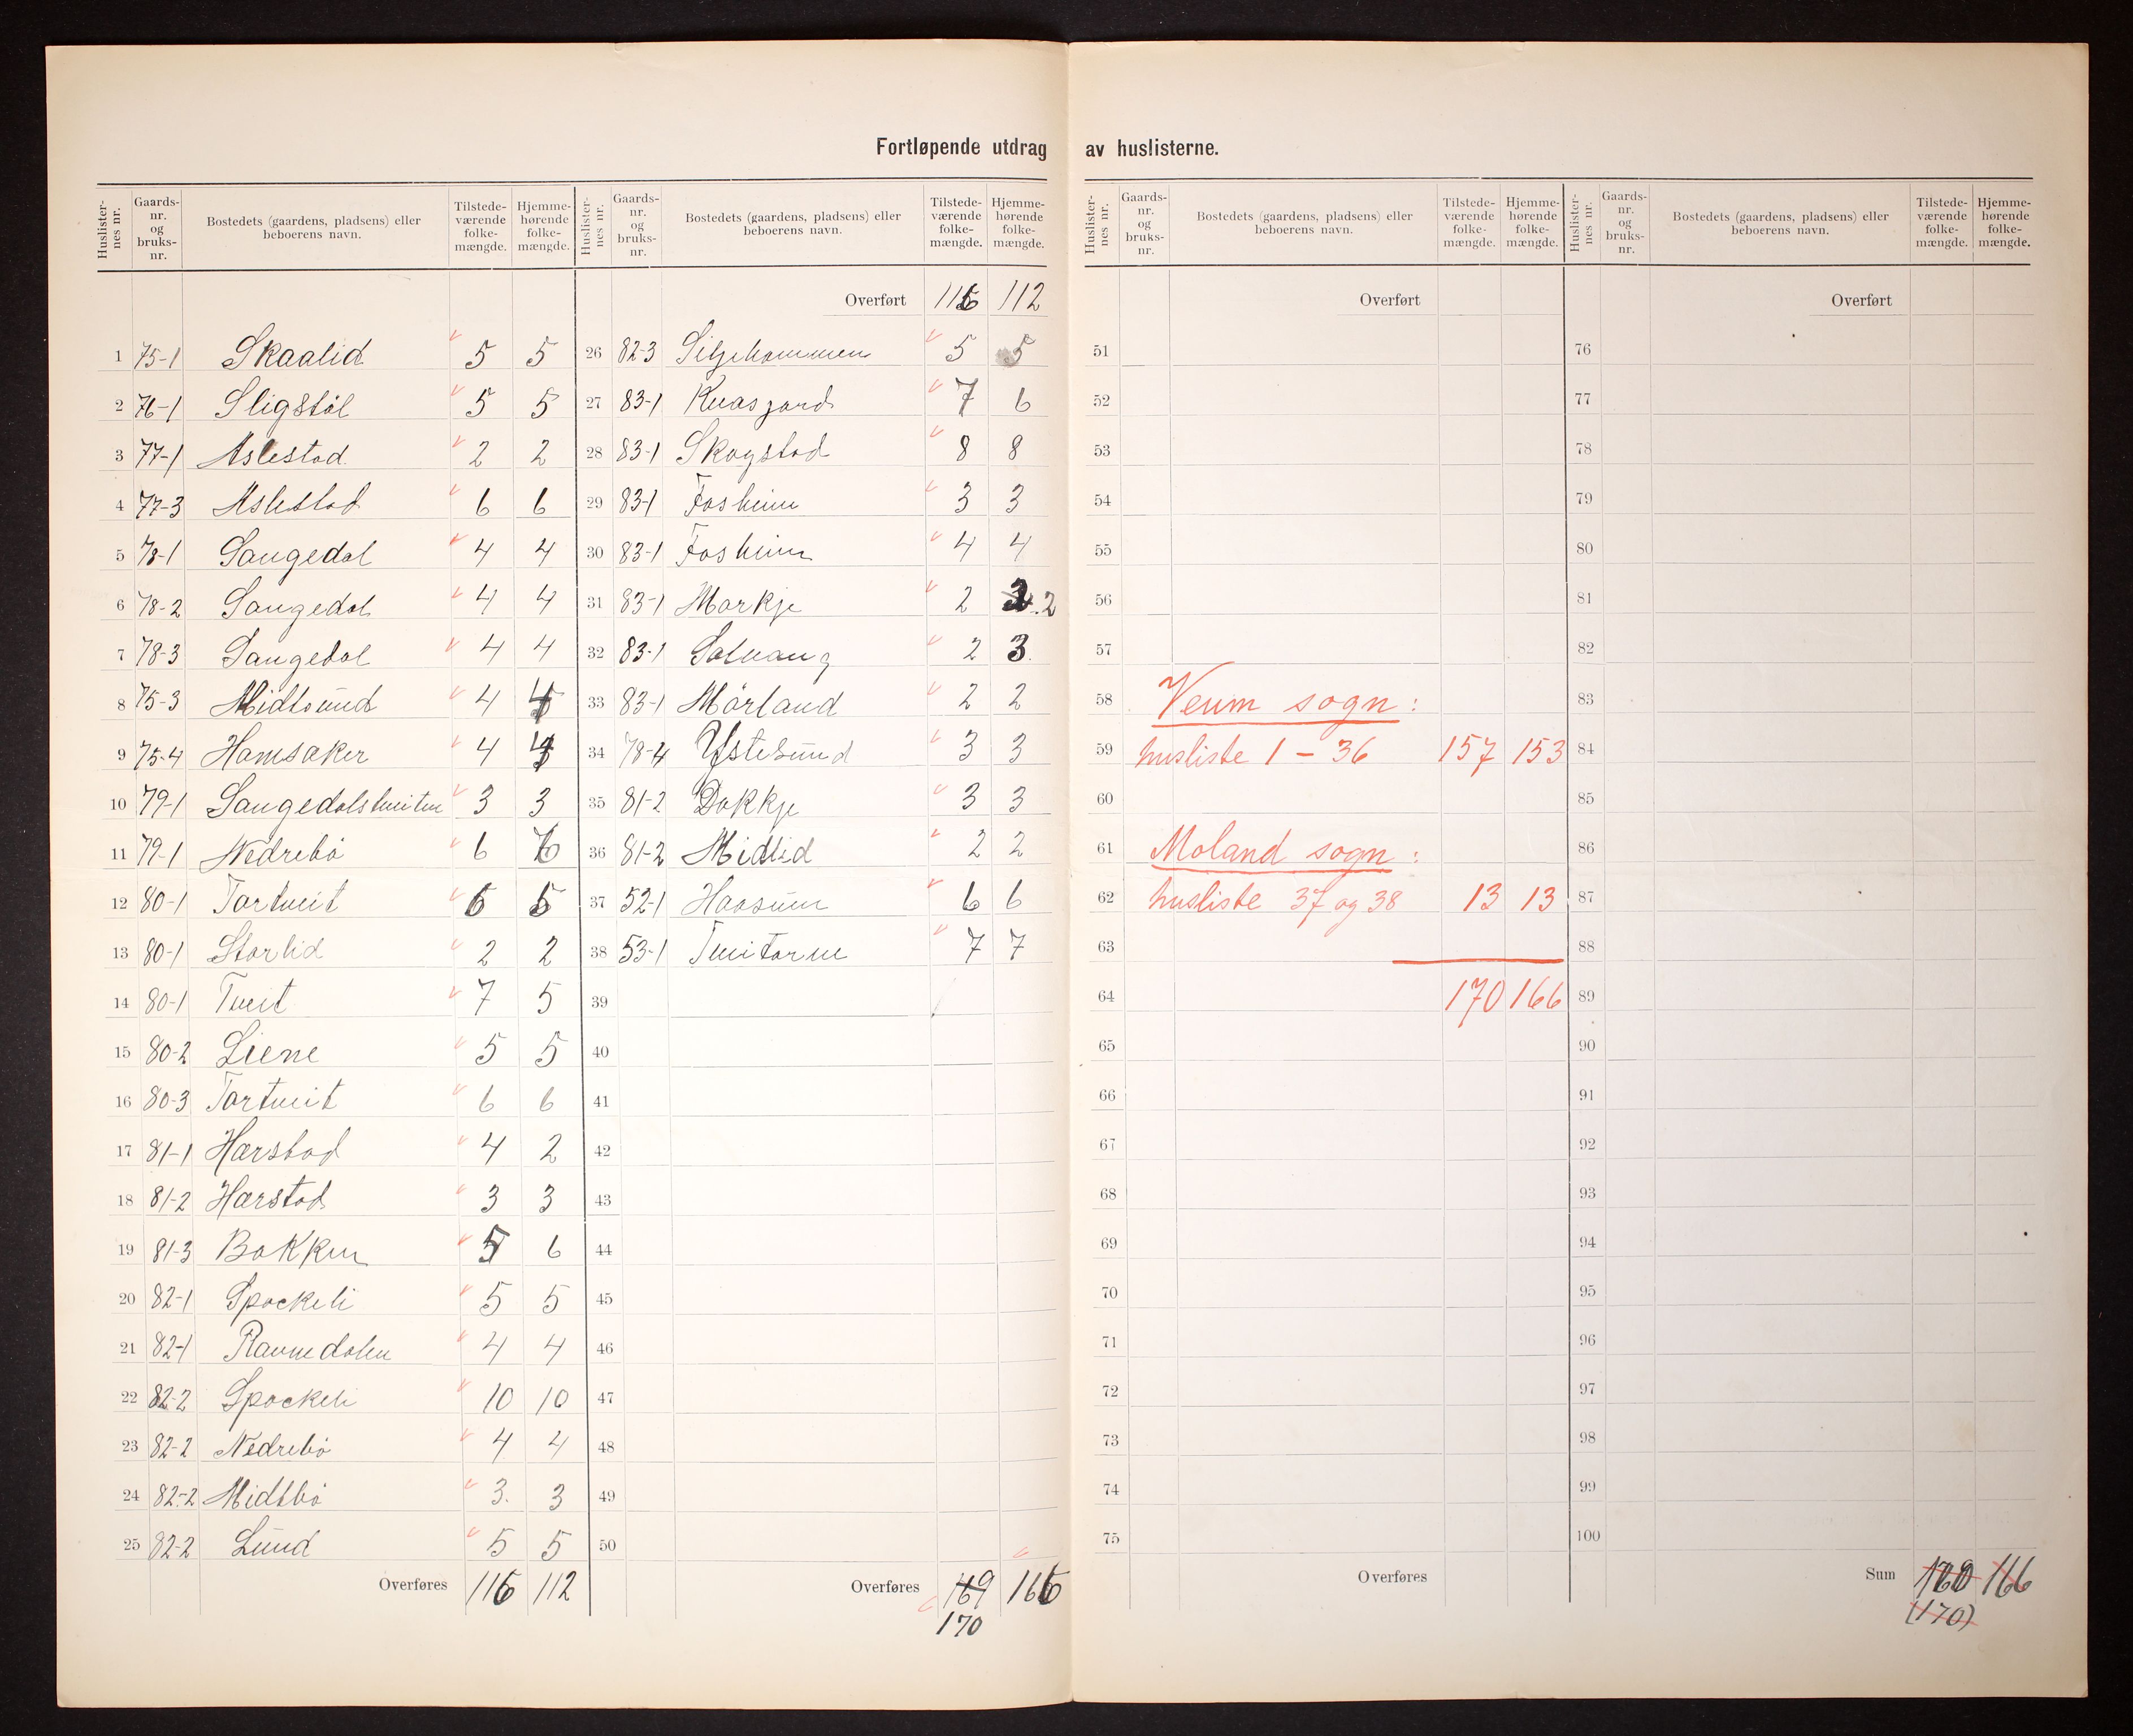 Fortløpende utdrag av huslisterne.
Huslisternes nr. Gaardsnr. og bruksnr. Bostedets (gaardens, pladsens) eller beboerens navn. Tilstedeværende folkemængde. Hjemmehørende folkemængde.
1 75-1 Skaalid 5 5
2 76-1 Sligstöl 5 5
3 77-1 Aslestad 2 2
4 77-3 Aslestad 6 6
5 78-1 Saugedal 4 4
6 78-2 Saugedal 4 4
7 78-3 Saugedal 4 4
8 75-3 Midtsund 4 4
9 75-4 Hamsaker 4 4
10 79-1 Saugedalstveiten 3 3
11 79-1 Nedrebö 6 6
12 80-1 Tortveit 6 5
13 80-1 Storlid 2 2
14 80-1 Tveit 7 5
15 80-2 Liene 5 5
16 80-3 Tortveit 6 6
17 81-1 Harstad 4 2
18 81-2 Harstad 3 3
19 81-3 Bakken 5 6
20 82-1 Spockeli 5 5
21 82-1 Ravnedalen 4 4
22 82-2 Spockeli 10 10
23 82-2 Nedrebö 4 4
24 82-2 Midtbö 3. 3
25 82-2 Lund 5 5
Overføres 116 112
Huslisternes nr. Gaardsnr. og bruksnr. Bostedets (gaardens, pladsens) eller beboerens navn. Tilstedeværende folkemængde. Hjemmehørende folkemængde.
Overført 116 112
26 82-3 Siljehammen 5 5
27 83-1 Kvasjard 7 6
28 83-1 Skogstad 8 8
29 83-1 Fosheim 3 3
30 83-1 Fosheim 4 4
31 83-1 Morkje 2 2
32 83-1 Solvang 2 3
33 83-1 Mörland 2 2
34 78-4 Ystesund 3 3
35 81-2 Dokkje 3 3
36 81-2 Midlid 2 2
37 52-1 Haasum 6 6
38 53-1 Tveitarne 7 7
39
40
41
42
43
44
45
46
47
48
49
50
Overføres 169 166
170
Huslisternes nr. Gaardsnr. og bruksnr. Bostedets (gaardens, pladsens) eller beboerens navn. Tilstedeværende folkemængde. Hjemmehørende folkemængde.
Overført
51
52
53
54
55
56
57
58 Veum sogn:
59 husliste 1 – 36 157 153
60
61 Moland sogn:
62 husliste 37 og 38 13 13
63
64 170 166
65
66
67
68
69
70
71
72
73
74
75
Overføres
Huslisternes nr. Gaardsnr. og bruksnr. Bostedets (gaardens, pladsens) eller beboerens navn. Tilstedeværende folkemængde. Hjemmehørende folkemængde.
Overført
76
77
78
79
80
81
82
83
84
85
86
87
88
89
90
91
92
93
94
95
96
97
98
99
100
Sum 166
(170)